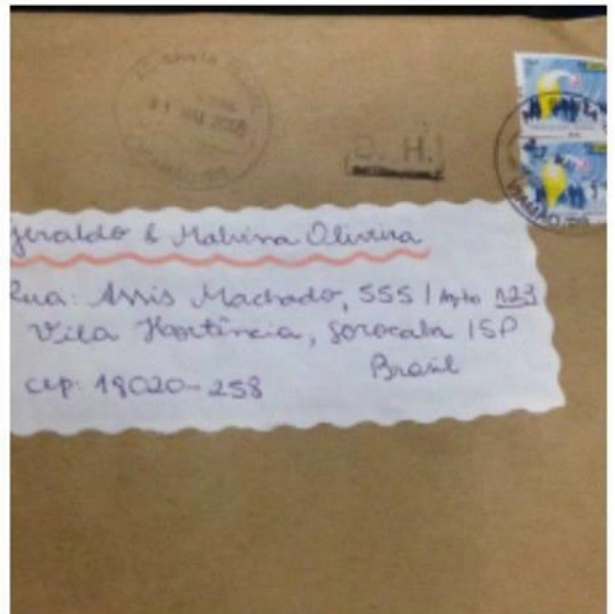 D. H.
Geraldo & Malvina Oliveira
Rua: Assis Machado, 555 / Apto 123
Vila Hortência, Sorocaba / SP
Brasil
cep: 18020-258